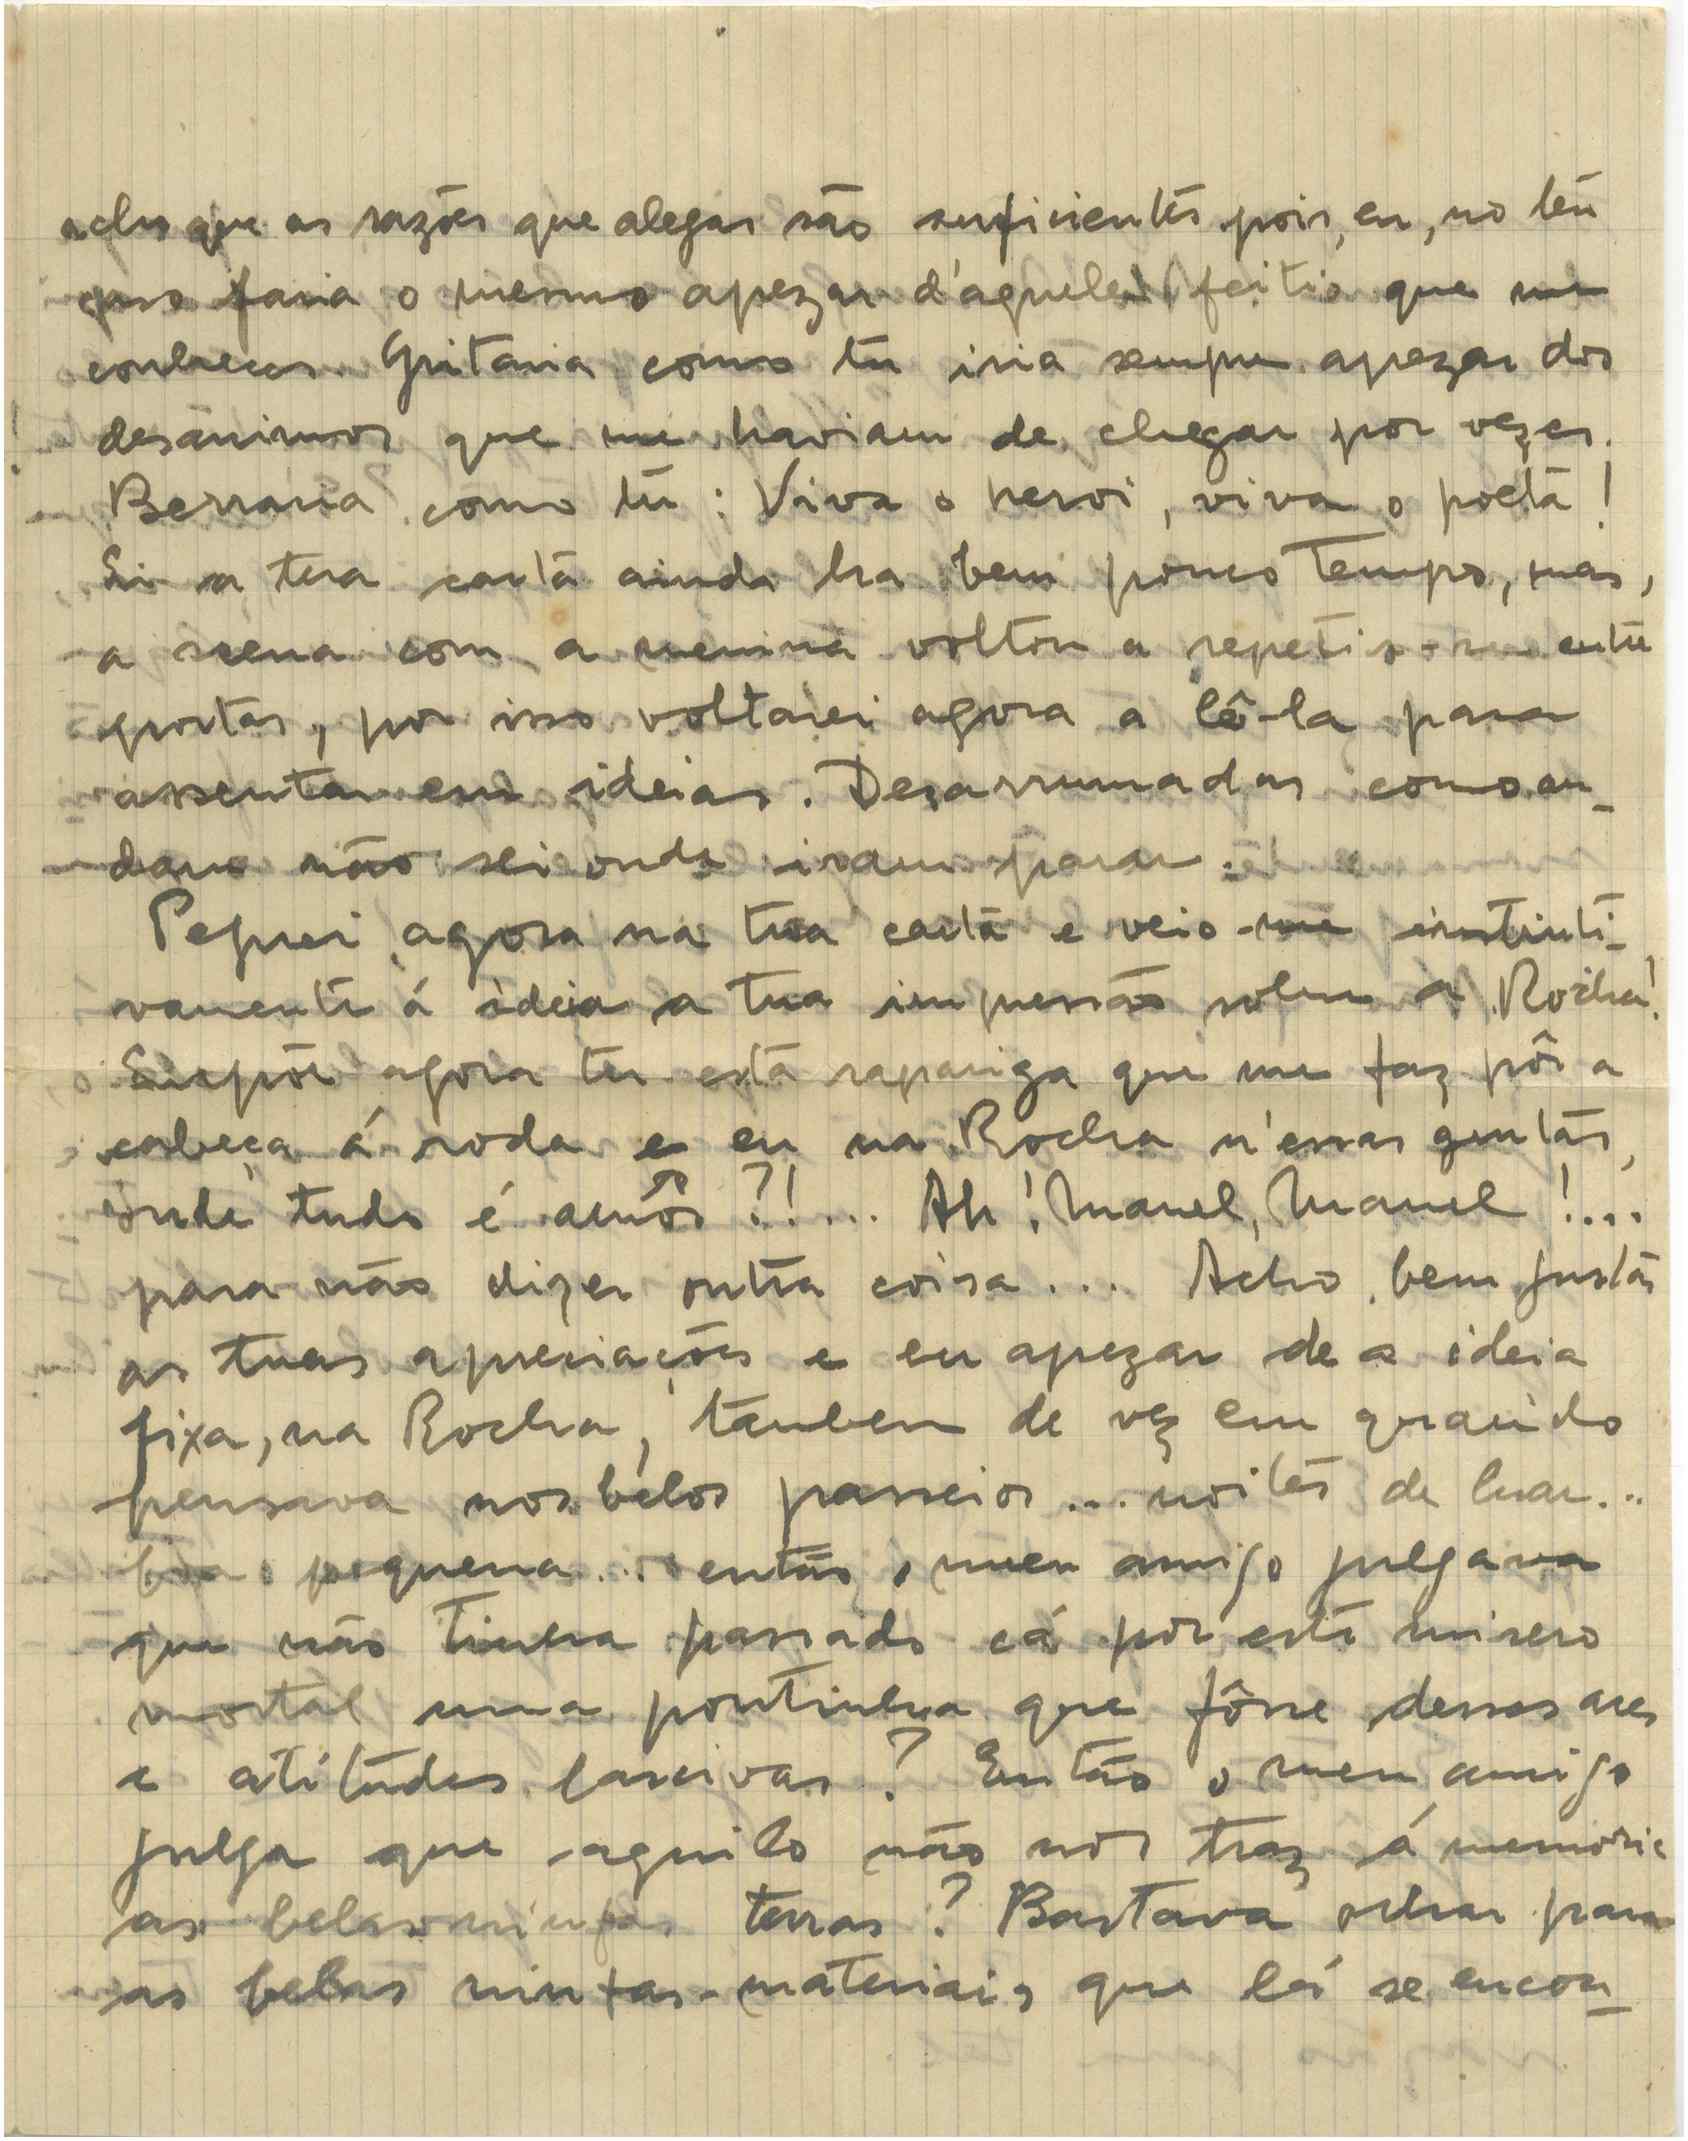 acho que as razões que alegas são suficientes pois, eu, no teu
caso faria o mesmo apezar d'aquele feitio que me
conheces. Gritaria como tu iria sempre apezar dos
desânimos que me haviam de chegar por vezes.
Berraria como tu: Viva o heroi, viva o poeta!
Li a tua carta ainda ha bem pouco tempo, mas,
a scena com a menina voltou a repetir-se entre
portas, por isso voltarei agora a lê-la para
assentar em ideias. Desarrumadas como an-
dam não sei onde iram parar.
Peguei agora na tua carta e veio-me instinti-
vamente á ideia a tua impressão sobre a Rocha!
Supôr agora ter esta rapariga que me faz pôr a
cabeça á roda e eu na Rocha n'essas grutas,
onde tudo é amôr?!... Ah! Manel, Manel!...
para não dizer outra coisa... Acho bem justas
as tuas apreciações e eu apezar de a ideia
fixa, na Rocha, tambem de vez em quando
pensava nos bélos passeios... noites de luar...
boa pequena... então o meu amigo julgava
que não tinha passado cá por este misero
mortal uma pontinha que fôsse desses ares
e atitudes lascivas? Então o meu amigo
julga que aquilo não nos traz á memória
as belas ninfas terras? Bastava olhar para
as belas ninfas-materiais que lá se encon-